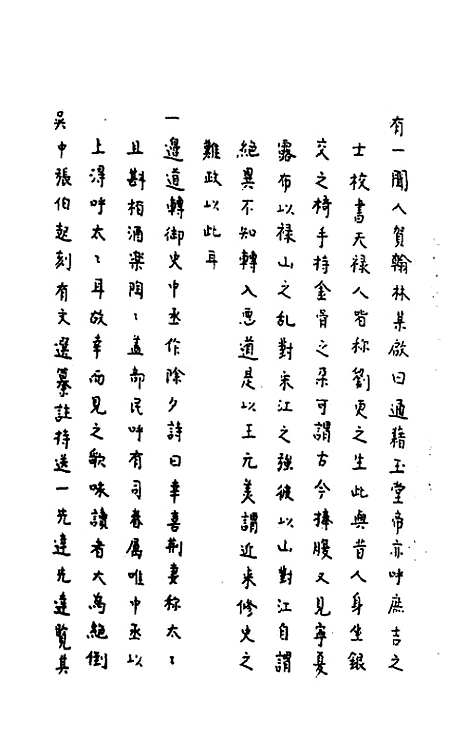 有一聞人賀翰林某啟曰通籍玉堂帝亦呼庶吉之
士校書天祿人皆稱劉更之生此與昔人身坐銀
交之椅手持金骨之朵可謂古今捧腹又見寧夏
露布以祿山之乱對宋江之強彼以山對江自謂
絕異不知轉入惡道是以王元美謂近来修史之
難政以此耳
一邊道轉御史中丞作除夕詩曰幸喜荆妻称太〻
且斟柏酒樂陶〻蓋部民呼有司眷属唯中丞以
上得呼太〻耳故幸而見之歌咏讀者大為絕倒
吳中張伯起刻有文選纂註持送一先達先達覽其